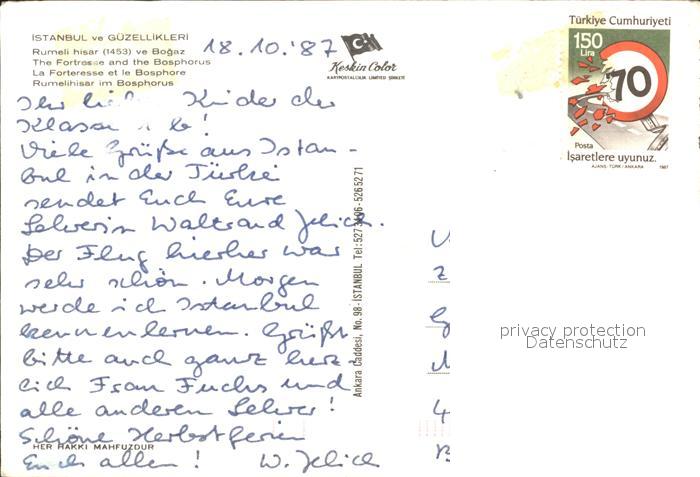 İSTANBUL ve GÜZELLİKLERİ
Rumeli hisar (1453) ve Boğaz
The Fortress and the Bosphorus
La Forteresse et le Bosphore
Rumelihisar im Bosphorus
18.10.'87
Keskin Color
KARTPOSTALCILIK LİMİTED ŞİRKETİ
Türkiye Cumhuriyeti
150
Lira
70
Posta
İşaretlere uyunuz.
AJANS-TÜRK/ANKARA 1987
Ihr lieben Kinder der
Klasse b!
Viele Grüße aus Istan-
bul in der Türkei
sendet Euch Eure
Lehrerin Waltraud Jelich.
Der Flug hierher war
sehr schön. Morgen
werde ich Istanbul
kennenlernen. Grüßt
bitte auch ganz herz-
lich Frau Fuchs und
alle anderen Lehrer!
Schöne Herbstferien
HER HAKKI MAHFUZDUR
Euch allen! W. Jelich
Ankara Caddesi, No. 98-İSTANBUL Tel: 5265271
privacy protection
Datenschutz